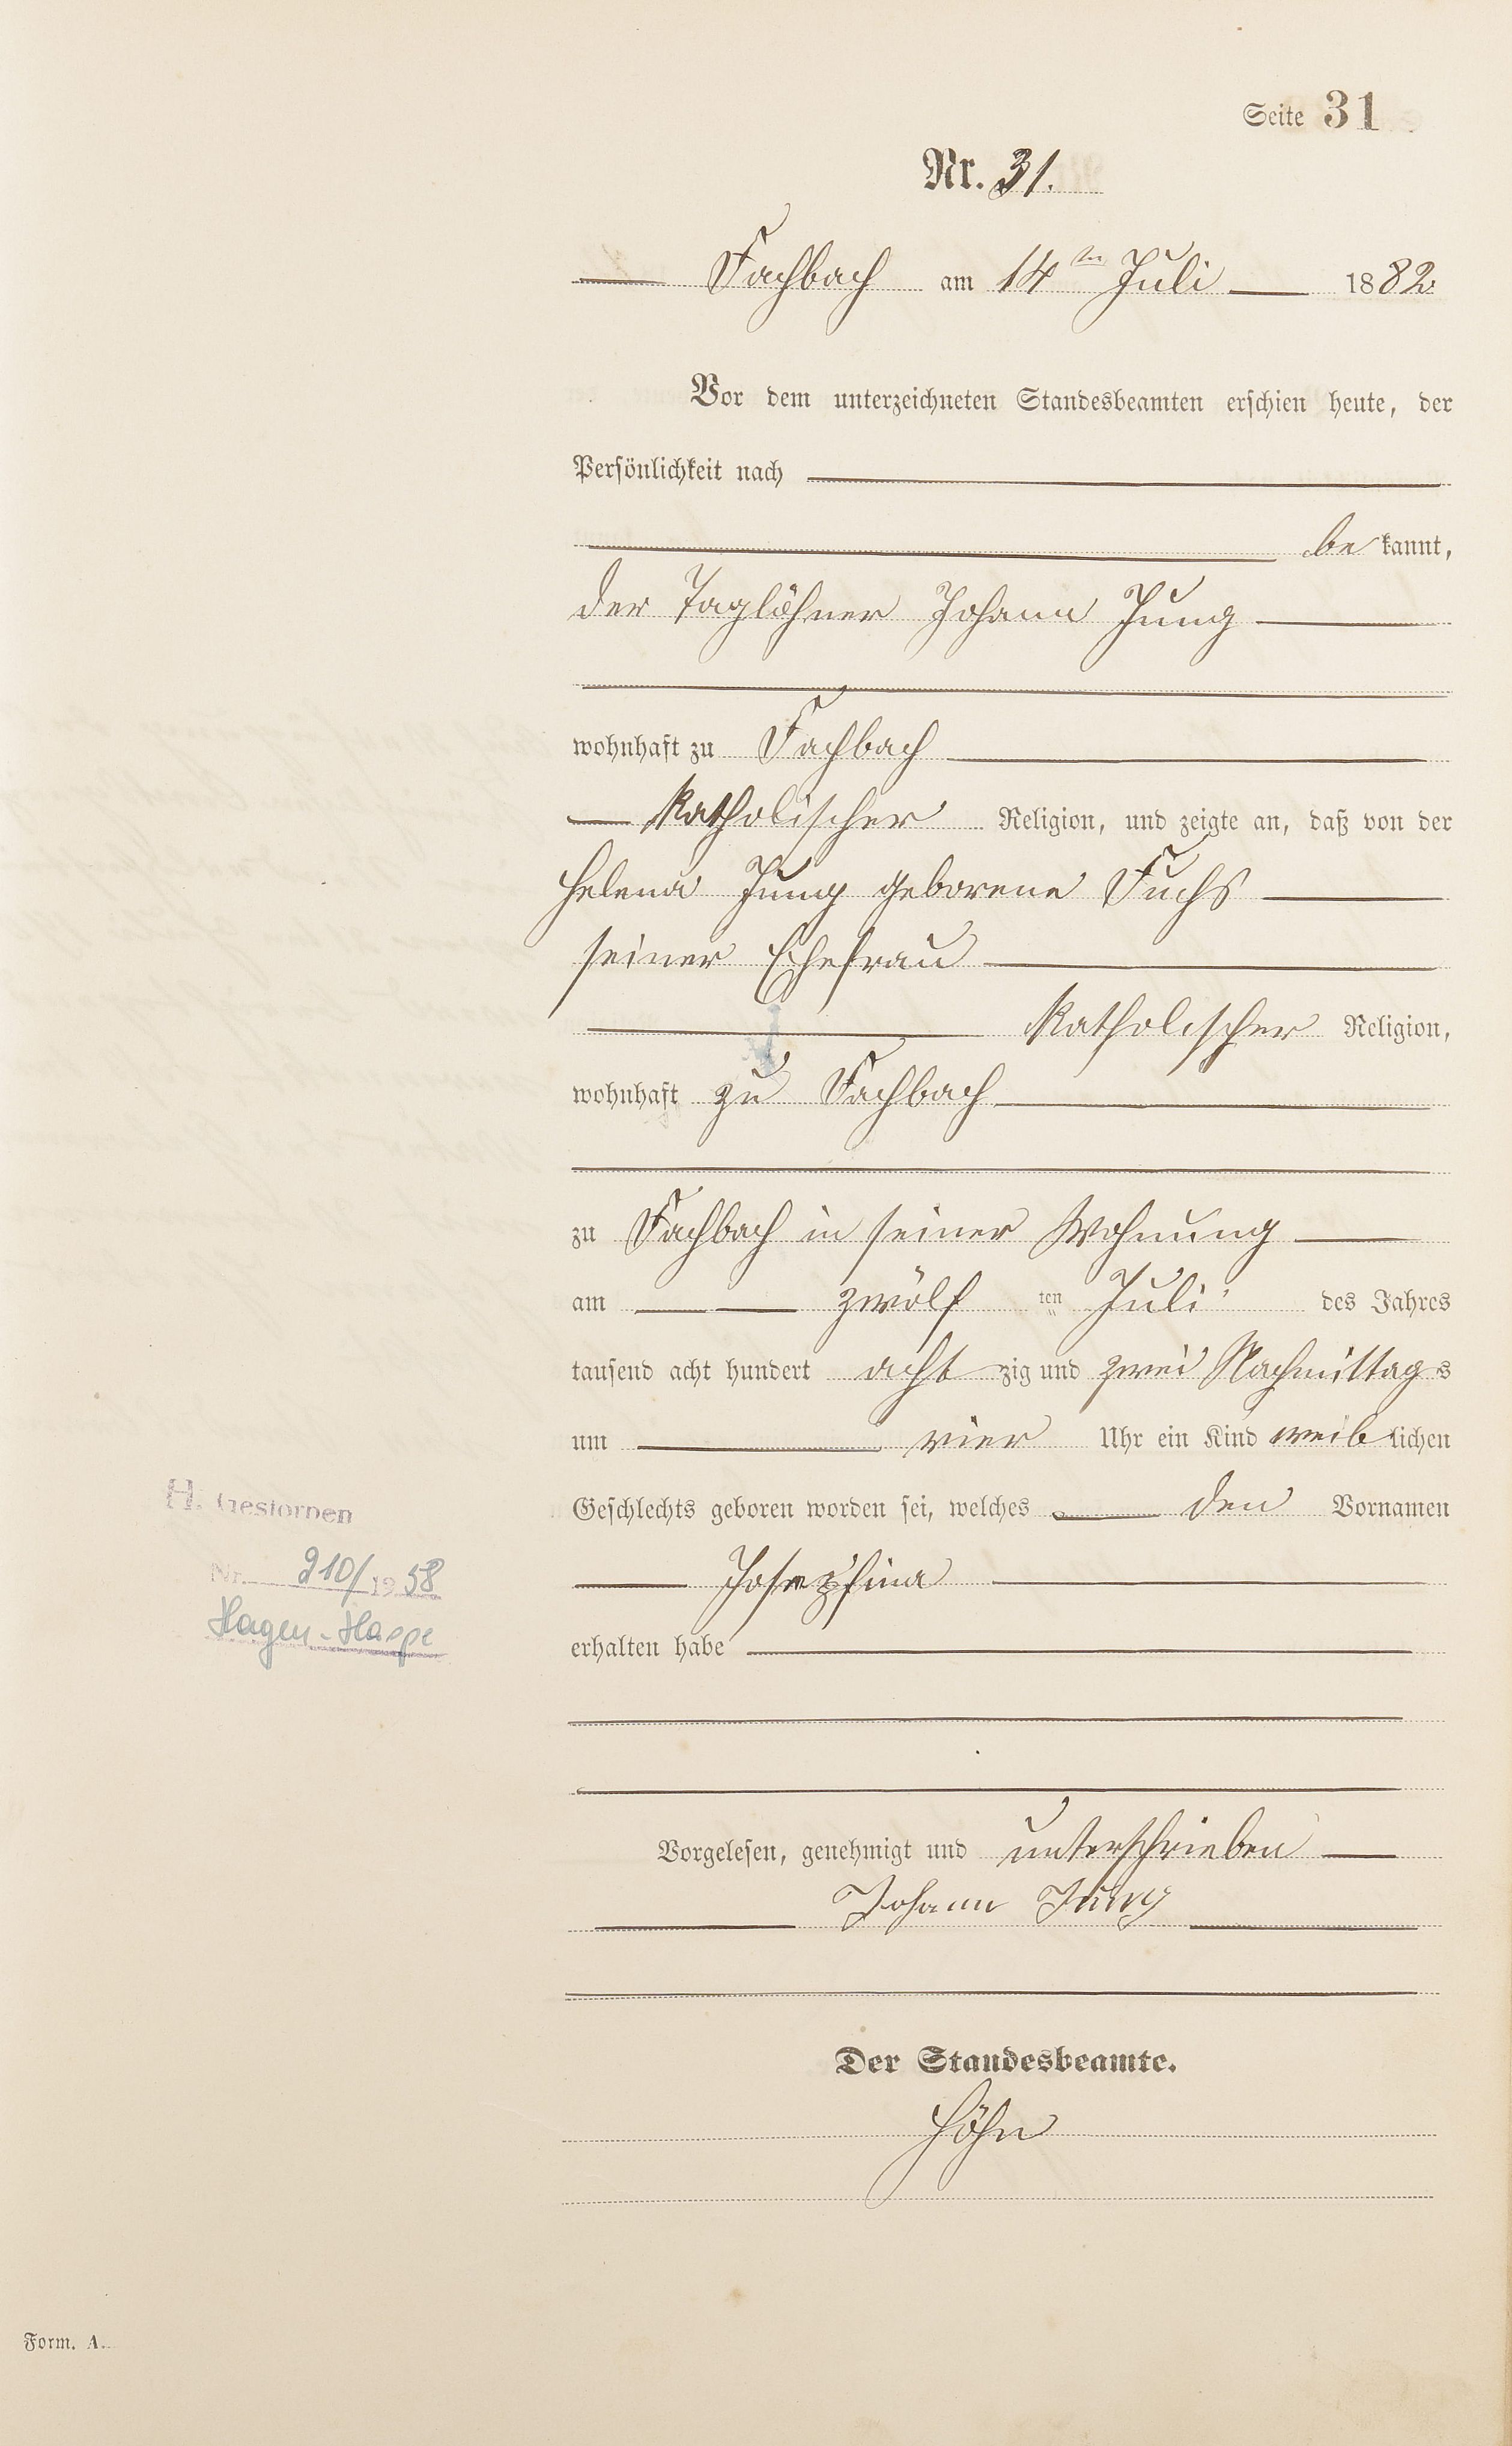 Seite 31
Nr. 31.
Fachbach am 14ten Juli 1882.
Vor dem unterzeichneten Standesbeamten erschien heute, der
Persönlichkeit nach
bekannt,
der Taglöhner Johann Jung
wohnhaft zu Fachbach
katholischer Religion, und zeigte an, daß von der
Helena Jung geborene Fuchs
seiner Ehefrau
katholischer Religion,
wohnhaft zu Fachbach
zu Fachbach in seiner Wohnung
am zwölf ten Juli des Jahres
tausend acht hundert acht zig und zwei Nachmittags
um vier Uhr ein Kind weiblichen
Geschlechts geboren worden sei, welches den Vornamen
H. Gestorben
Josephina
Nr. 210/1958
Hagen-Haspe
erhalten habe
Vorgelesen, genehmigt und unterschrieben
Johann Jung
Der Standesbeamte.
Höhn
Form. A.